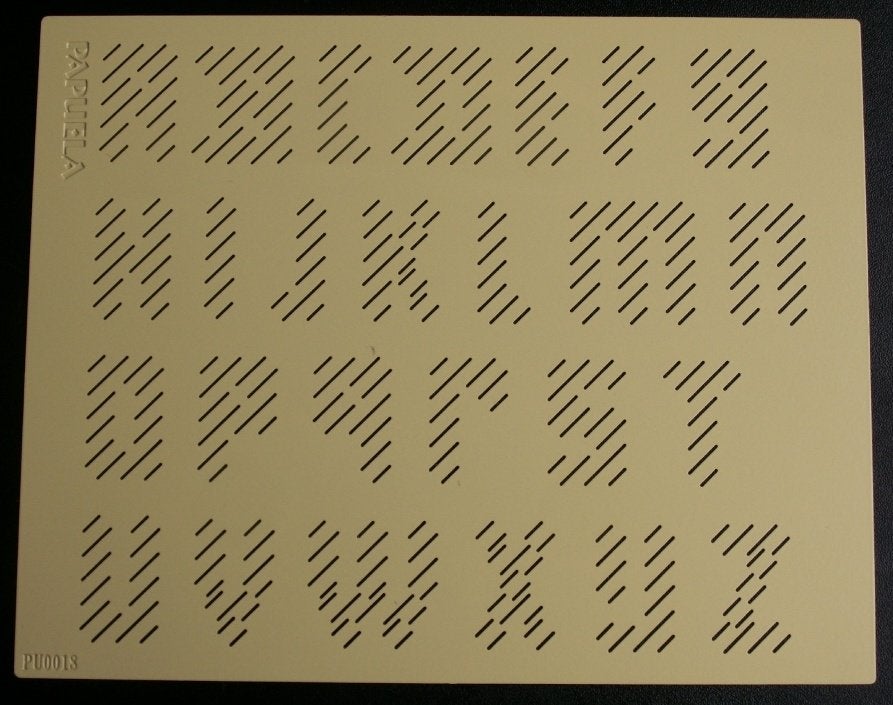 PAPUELA
A B C D E F G
H I J K L M N
O P Q R S T
U V W X Y Z
PU0013